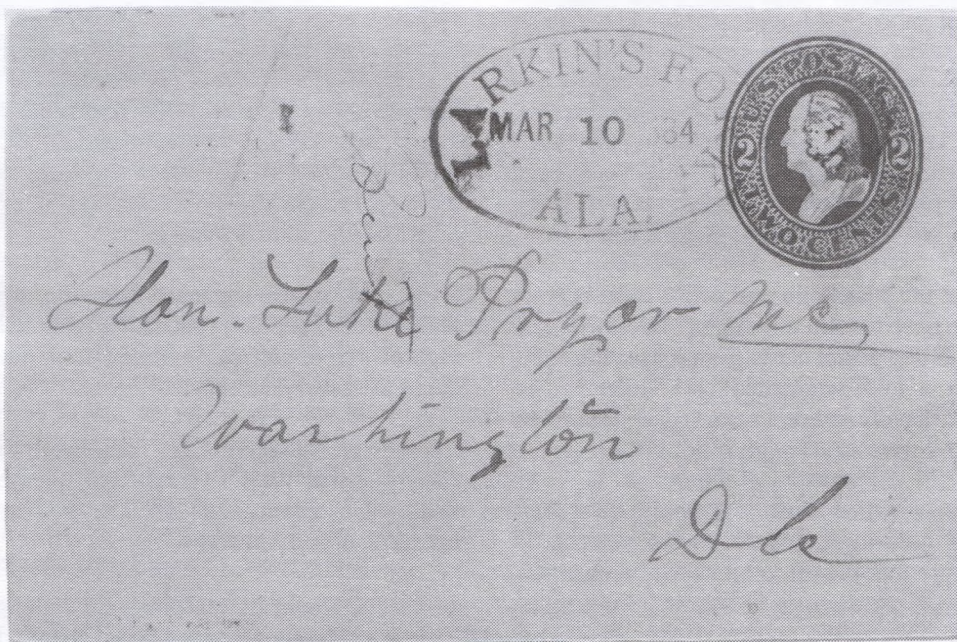 LARKIN'S FO
MAR 10 84
ALA.
U.S. POSTAGE
2 2
TWO CENTS
Hon. Luke Pryor MC
Washington
DC